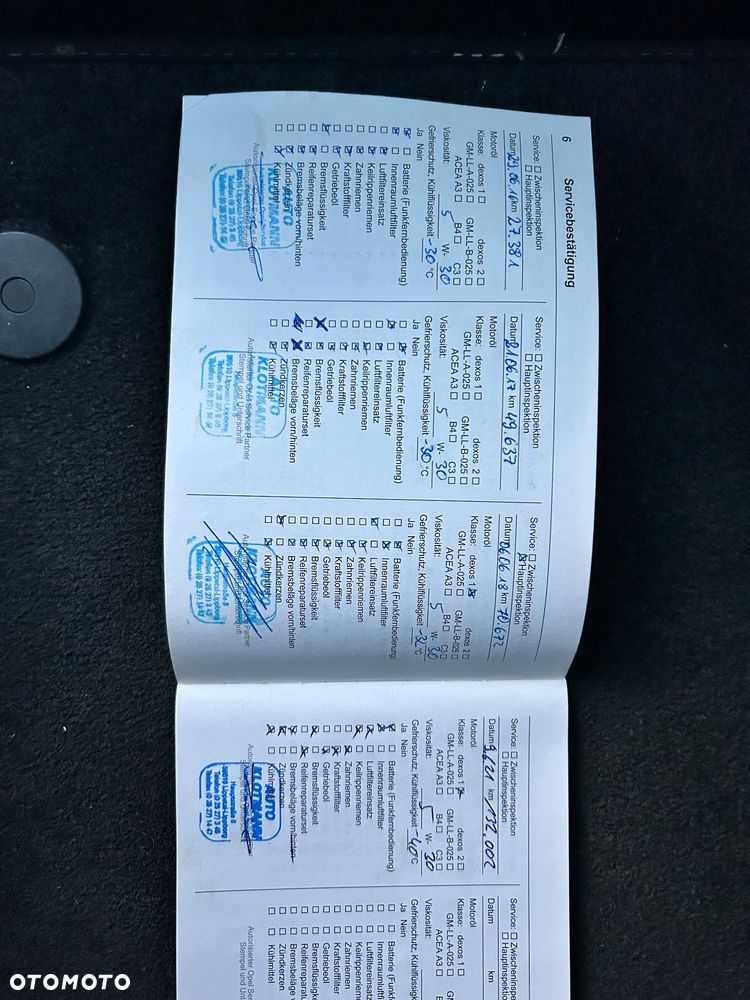 6
Servicebestätigung
Service: ☐ Zwischeninspektion
☐ Hauptinspektion
Datum 29.06.16 km 27.381
Motoröl
Klasse: dexos 1 ☐ dexos 2 ☐
GM-LL-A-025 ☐ GM-LL-B-025 ☐
ACEA A3 ☐ B4 ☐ C3 ☐
Viskosität: 5 W- 30
Gefrierschutz, Kühlflüssigkeit -30 °C
Ja Nein
Batterie (Funkfernbedienung)
Innenraumluftfilter
Luftfiltereinsatz
Keilrippenriemen
Zahnriemen
Kraftstofffilter
Getriebeöl
Bremsflüssigkeit
Reifenreparaturset
Bremsbeläge vorn/hinten
Zündkerzen
Kühlmittel
AUTO
KLOTMANN
Service: ☐ Zwischeninspektion
☐ Hauptinspektion
Datum 21.06.17 km 49.637
Motoröl
Klasse: dexos 1 ☐ dexos 2 ☐
GM-LL-A-025 ☐ GM-LL-B-025 ☐
ACEA A3 ☐ B4 ☐ C3 ☐
Viskosität: 5 W- 30
Gefrierschutz, Kühlflüssigkeit -30 °C
Ja Nein
Batterie (Funkfernbedienung)
Innenraumluftfilter
Luftfiltereinsatz
Keilrippenriemen
Zahnriemen
Kraftstofffilter
Getriebeöl
Bremsflüssigkeit
Reifenreparaturset
Bremsbeläge vorn/hinten
Zündkerzen
Kühlmittel
AUTO
KLOTMANN
Autorisierter Opel Service Partner
Stempel und Unterschrift
Service: ☐ Zwischeninspektion
☒ Hauptinspektion
Datum 06.06.18 km 70.672
Motoröl
Klasse: dexos 1 ☒ dexos 2 ☐
GM-LL-A-025 ☐ GM-LL-B-025 ☐
ACEA A3 ☐ B4 ☐ C3 ☐
Viskosität: 5 W- 30
Gefrierschutz, Kühlflüssigkeit °C
Ja Nein
Batterie (Funkfernbedienung)
Innenraumluftfilter
Luftfiltereinsatz
Keilrippenriemen
Zahnriemen
Kraftstofffilter
Getriebeöl
Bremsflüssigkeit
Reifenreparaturset
Bremsbeläge vorn/hinten
Zündkerzen
Kühlmittel
Service: ☐ Zwischeninspektion
☐ Hauptinspektion
Datum 9.6.21 km 132.002
Motoröl
Klasse: dexos 1 ☒ dexos 2 ☐
GM-LL-A-025 ☐ GM-LL-B-025 ☐
ACEA A3 ☐ B4 ☐ C3 ☐
Viskosität: 5 W- 30
Gefrierschutz, Kühlflüssigkeit -40 °C
Ja Nein
Batterie (Funkfernbedienung)
Innenraumluftfilter
Luftfiltereinsatz
Keilrippenriemen
Zahnriemen
Kraftstofffilter
Getriebeöl
Bremsflüssigkeit
Reifenreparaturset
Bremsbeläge vorn/hinten
Zündkerzen
AUTO
KLOTMANN
Service: ☐ Zwischeninspektion
☐ Hauptinspektion
Datum km
Motoröl
Klasse: dexos 1 ☐
GM-LL-A-025 ☐
ACEA A3 ☐
Viskosität:
Gefrierschutz, Kühlflüssig
Ja Nein
Batterie (Funkfernb
Innenraumluftfilter
Luftfiltereinsatz
Keilrippenriemen
Zahnriemen
Kraftstofffilter
Getriebeöl
Bremsflüssigkeit
Reifenreparaturset
Bremsbeläge vo
Zündkerzen
Kühlmittel
Autorisierter Opel S
Stempel und Unt
OTOMOTO